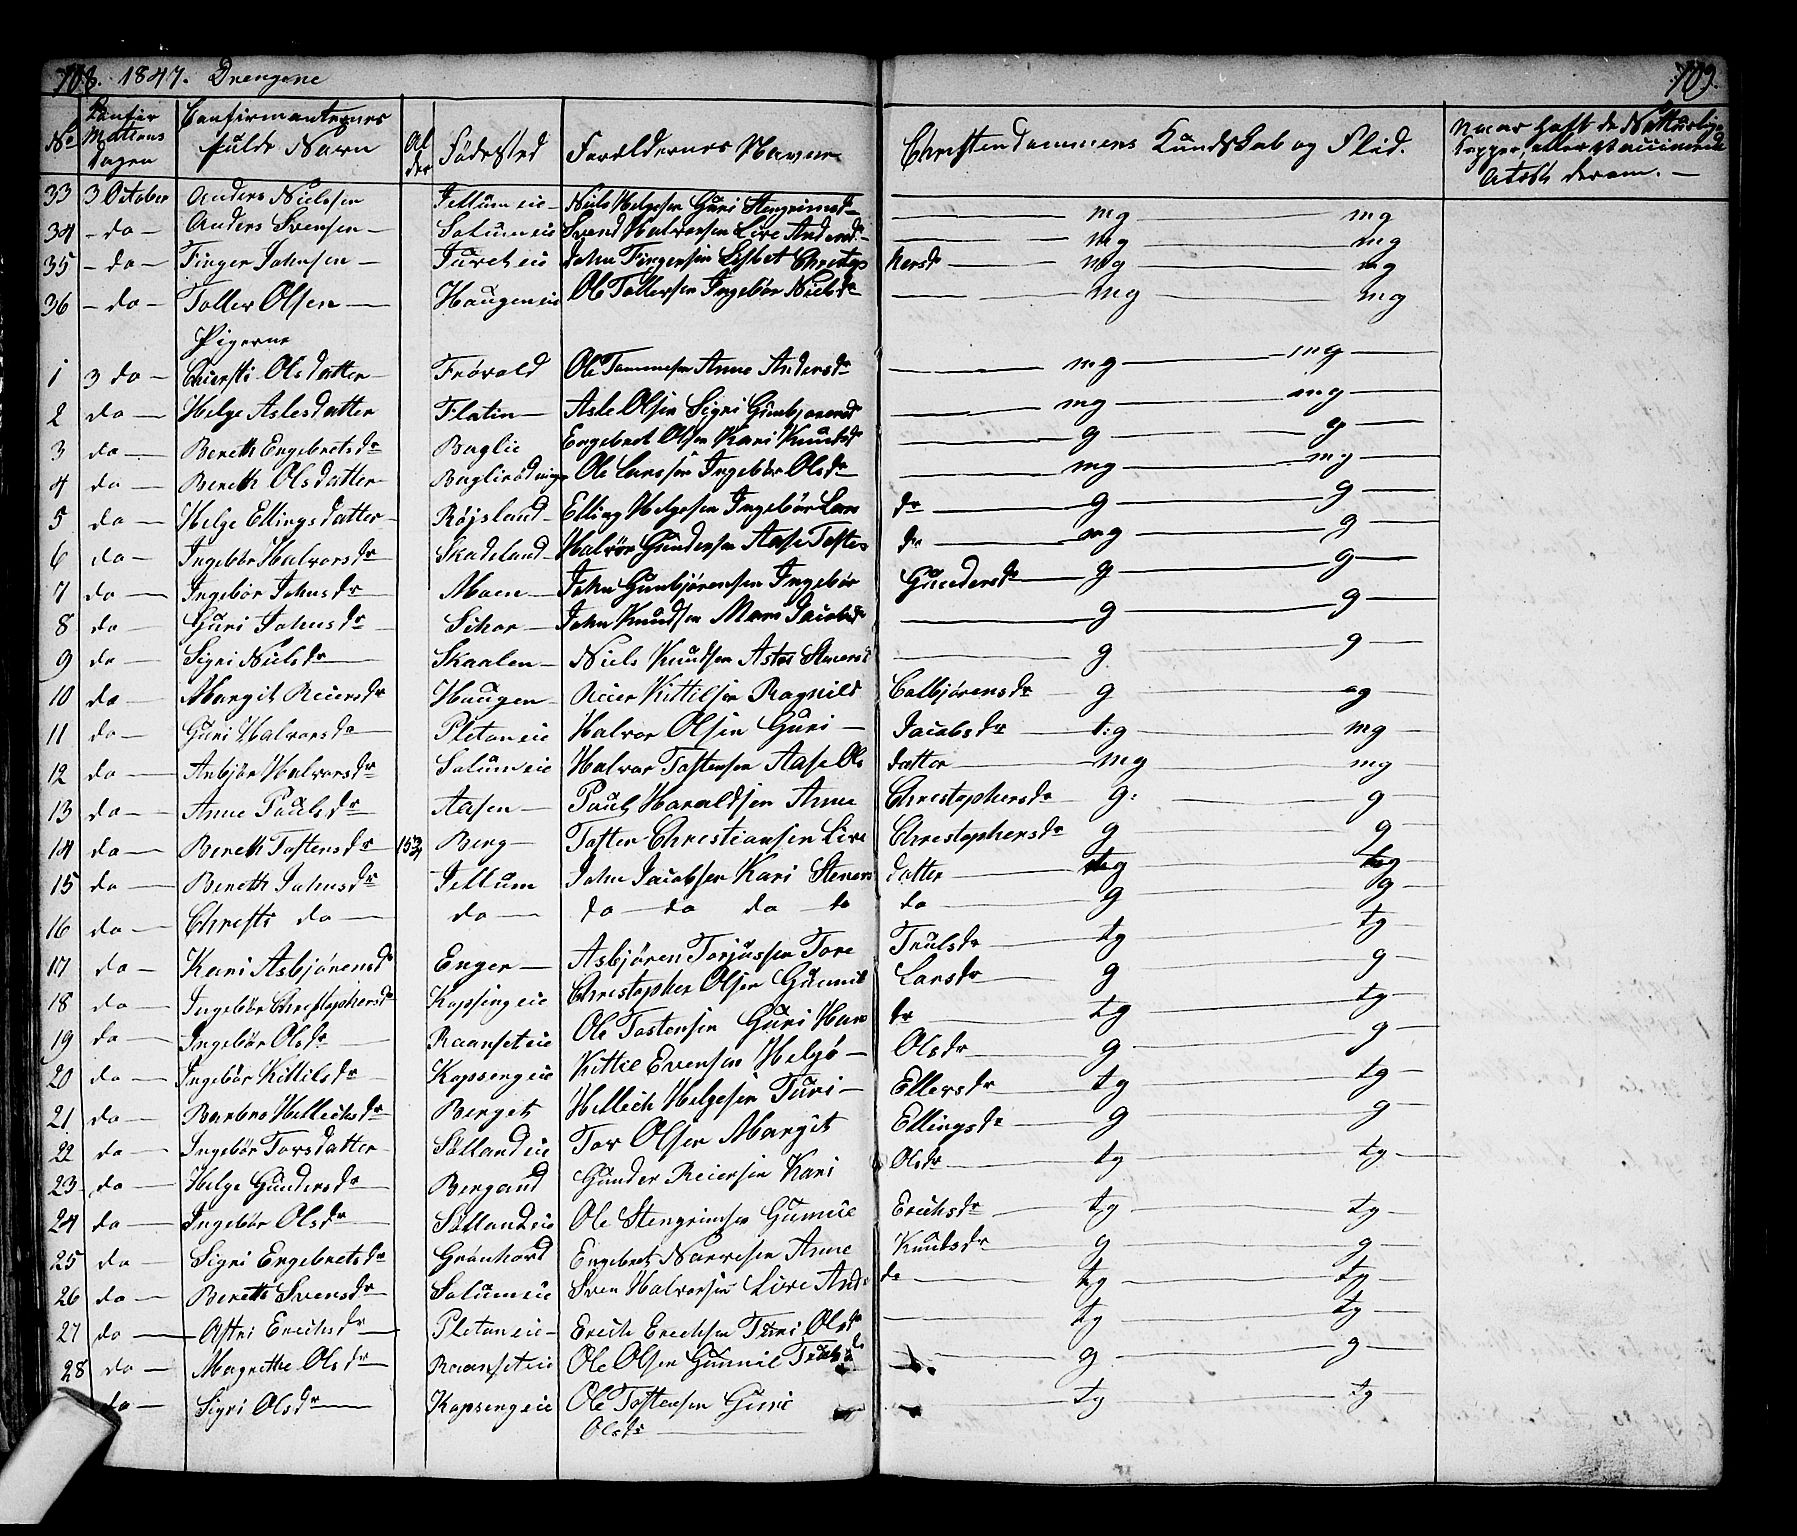 708. 1847. Drengene 709.
No Confir Mattens Dagen Confirmanternes fulde Navn Al der Fødested Forældernes Navne Christendommens Kundskab og Flid. Naar haft de Naturlige Kopper, eller Vaccinerede Attest derom. —
33 3 October Anders Nielsen Jellum eie — Niels Helgesen Guri Stengrimsdr — mg — mg
34 — do — Anders Svensen — Solum eie Svend Halvorsen Live Andersdr — mg — mg
35 — do — Finger Johnsen — eie John Fingersen Lisbet Christop hersdr — mg — mg
36 — do — Toller Olsen — Haugen eie Ole Tollersen Ingebør Nielsdr — mg — mg
Pigerne
1 3 do — Chiersti Olsdatter — Frøvold Ole Tommesen Anne Andersdr — mg — mg —
2 do — Helge Aslesdatter Flatin — Asle Olsen Sigri Gunbjørensd — mg — mg —
3 do — Bereth Engebretsdr Baglie Engebret Olsen Kari Knudsd — g — g —
4 do — Bereth Olsdatter Baglirødningen Ole Larsen Ingebør Olsdr — mg — mg —
5 do — Helge Ellingsdatter — Røjsland — Elling Helgesen Ingebør Lars dr — g — g
6 do — Ingebør Halvorsdr — Skadeland — Halvor Gundersen Aase Tostens dr — mg — g —
7 do — Ingebør Johnsdr — Moen — John Gunbjørensen Ingebør Gundersdr — g — g —
8 do Guri Johnsdr — — John Knudsen Mari Jacobsdr — g — g —
9 do — Sigri Nielsdr — Skaalen — Niels Knudsen Steners — g — g —
10 do — Margit Reiersdr Haugen — Reier Kittilsen Ragnild Colbjørensdr g — g
11 do — Guri Halvorsdr Pletan eie Halvor Olsen Guri — Jacobsdr — t:g — mg —
12 do — Anbjør Halvorsdr Solum eie Halvor Tostensen Aase Ols datter — mg — mg
13 do — Anne Paulsdr — Aasen — Paul Haraldsen Anne Christophersdr — g: — g
14 do — Bereth Tostensdr 15¾ Berg — Tosten Christiansen Live Christophersdr g — g
15 do — Bereth Johnsdr Jellum John Jacobsen Kari Steners datter — tg — tg
16 do — Christi do — do — do — do do — do do — g — g —
17 do — Kari Asbjørensd Enger — Asbjøren Torjussen Tore Trulsdr — tg — tg
18 do — Ingebør Christophersdr Kopseng eie Christopher Olsen Gunnil Larsdr — g — g —
19 do — Ingebør Olsdr — Raanset eie Ole Tostensen Guri Han dr — tg — tg —
20 do — Ingebør Kittilsdr — Kopseng eie Kittil Evensen Helgø — Olsdr — g — g —
21 do — Barbro Hellechsdr Berget Hellech Helgesen Turi — Ellersdr — tg — tg —
22 do — Ingebør Torsdatter — Sølland eie Tor Olsen Margit Ellingsdr — g — g —
23 do — Helge Gundersdr — Bergand Gunder Reiersen Kari Olsdr — tg — tg —
24 do — Ingebør Olsdr — Sølland eie Ole Stengrimsen Gunnil Erichsdr — tg — tg —
25 do — Sigri Engebretsdr Grønhord Engebret Narvesen Anne Knudsdr — g — g —
26 do — Bereth Svensdr — Solum eie Sven Halvorsen Live And dr — tg — tg —
27 do — Astri Erichsdr — Pletan eie — Erich Erichsen Turi Olsdr — tg — tg —
28 do — Magrethe Olsdr — Raanset eie Ole Olsen Gunnil Trulsdr — g — g —
do — Sigri Olsdr — Kopseng eie Ole Tostensen Guri — tg — tg —
Olsdr —